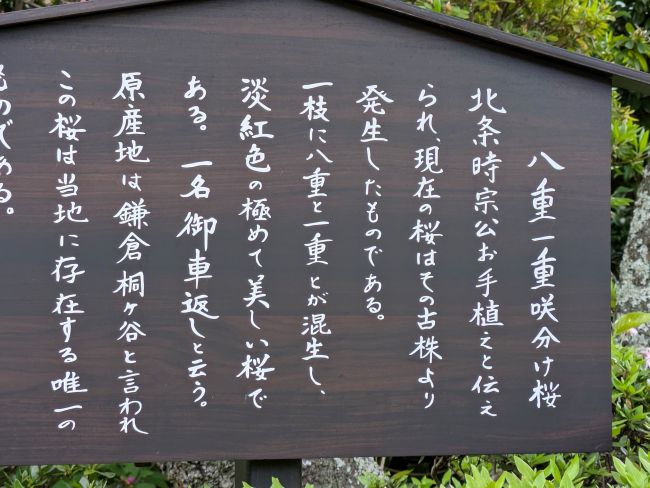 八重一重咲分け桜
北条時宗公お手植えと伝え
られ、現在の桜はその古株より
発生したものである。
一枝に八重と一重とが混生し、
淡紅色の極めて美しい桜で
ある。一名御車返しと云う。
原産地は鎌倉桐ヶ谷と言われ
この桜は当地に存在する唯一の
ものである。